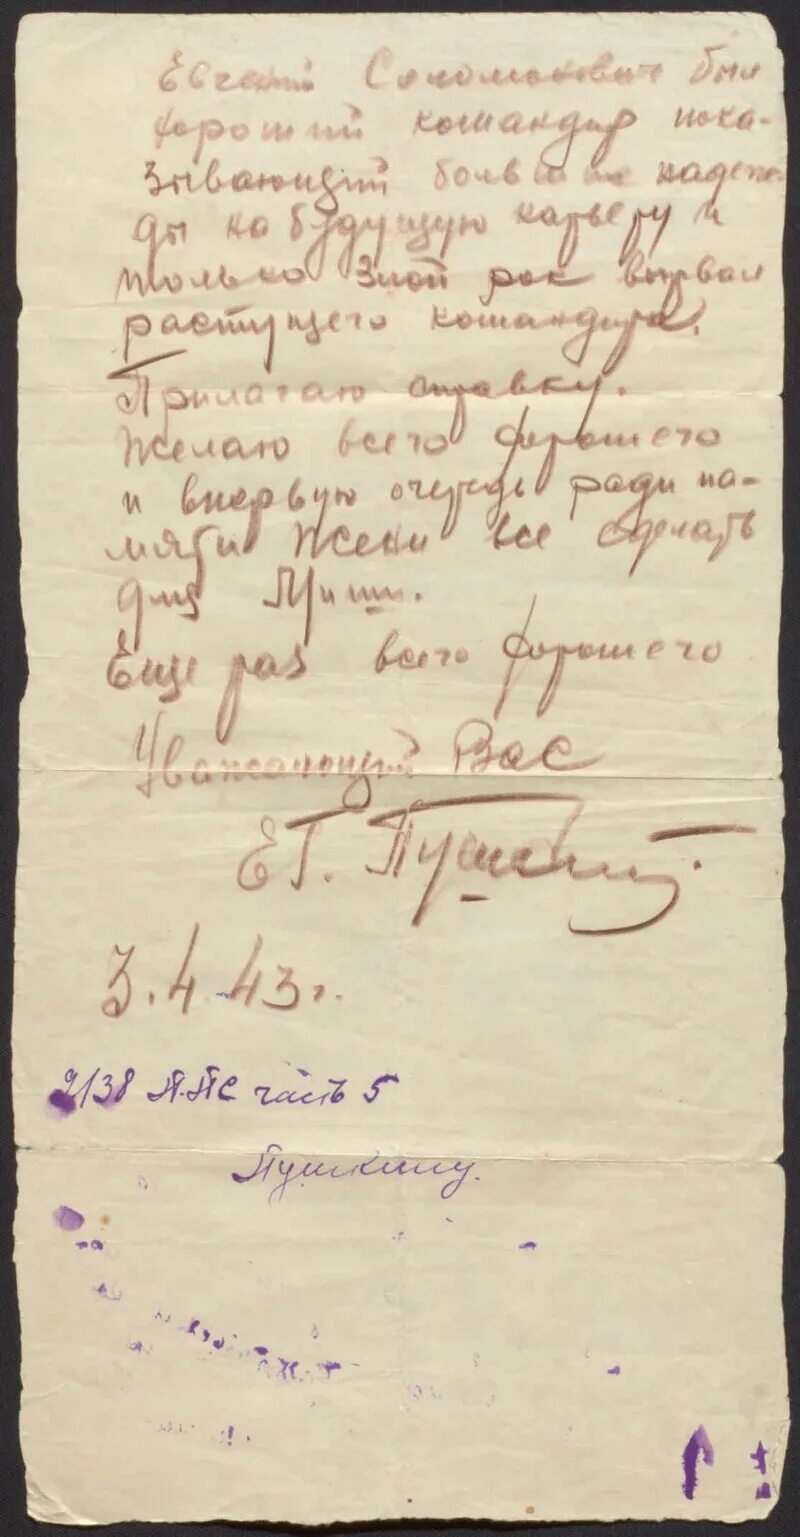 Евгений Соломонович был
хороший командир пока-
зывающий большие надеж-
ды на будущую карьеру и
только злой рок вырвал
растущего командира.
Прилагаю справку.
Желаю всего хорошего
и впервую очередь ради па-
мяти Жени все сделать
для Миши.
Еще раз всего хорошего
Уважающий Вас
Е Г. Пушкин.
3.4.43 г.
2138 П.ПС часть 5
Пушкину.